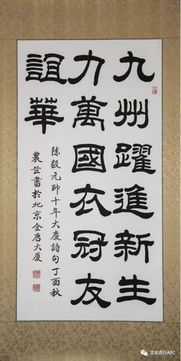 九州躍進新生
力萬國衣冠友
誼華
陳毅元帥十年大慶詩句丁酉秋
農書於北京金唐大厦
文化农行ABC